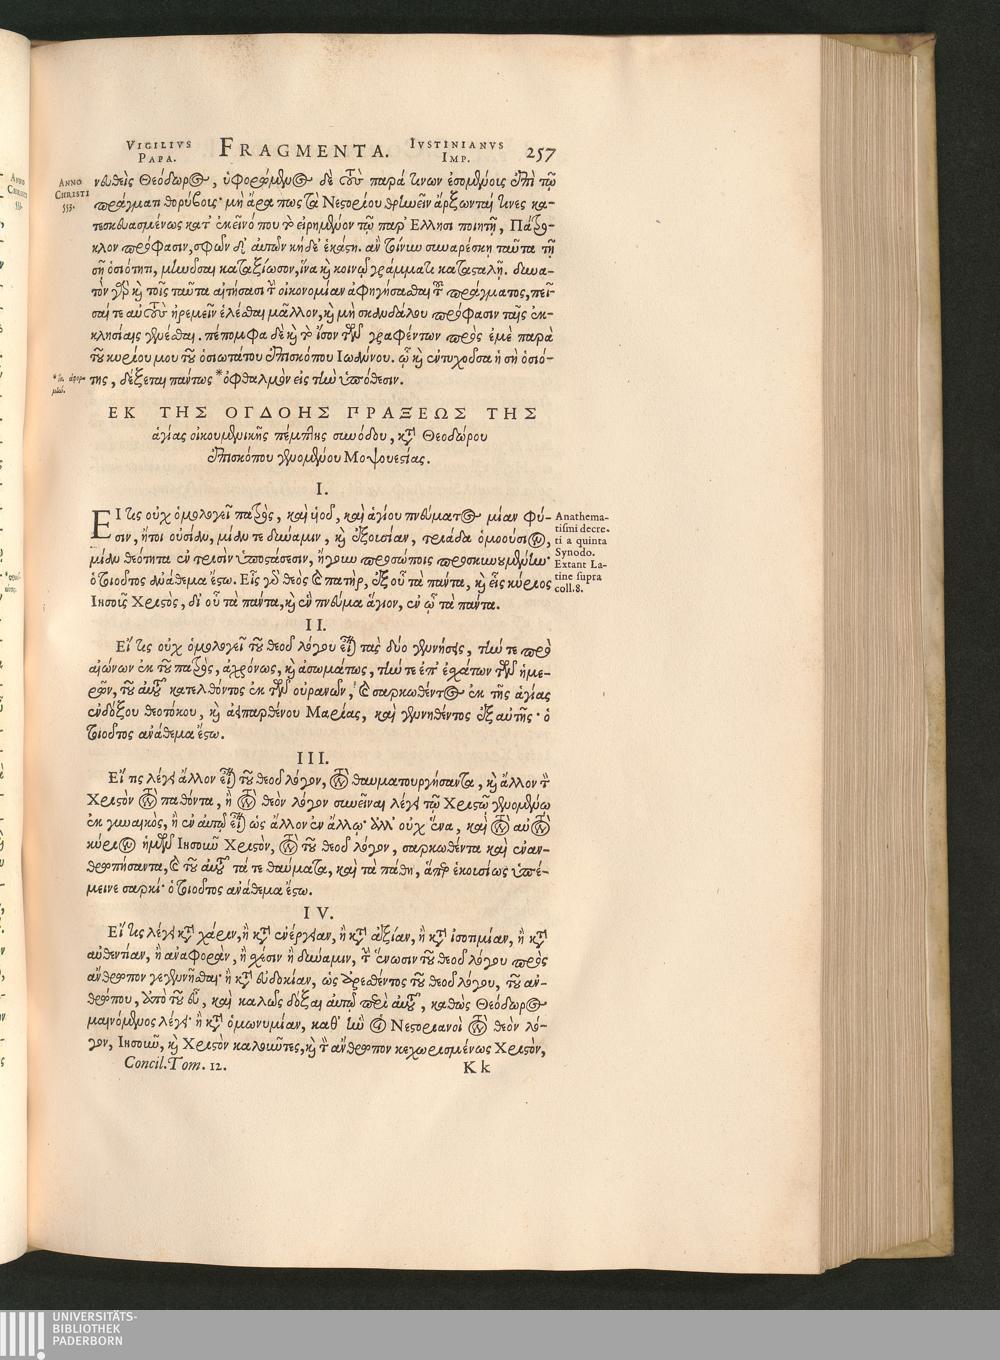 VIGILIVS PAPA. FRAGMENTA. IVSTINIANVS IMP. 257
ANNO CHRISTI 553.
νευθεὶς Θεόδωρος, ὑφορώμενος δὲ τοὺς παρά τινων ἐσομένους ἐπὶ τῷ
πράγματι θορύβους· μὴ ἄρα πως τὰ Νεστορίου θρηνεῖν ἄρξωνταί τινες κα-
τεσκευασμένως κατ' ἐκεῖνό που τὸ εἰρημένον τῷ παρ' Ἕλλησι ποιητῇ, Πάτρο-
κλον πρόφασιν, σφῶν δ' αὐτῶν κήδε' ἑκάστη. ἂν τοίνυν συναρέσκῃ ταῦτα τῇ
σῇ ὁσιότητι, μηνῦσαι καταξίωσον, ἵνα καὶ κοινῷ γράμματι κατασταλῇ. δυνα-
τὸν γὰρ καὶ τοῖς ταῦτα αἰτήσασι τὴν οἰκονομίαν ἀφηγήσασθαι τοῦ πράγματος, πεῖ-
σαί τε αὐτοὺς ἠρεμεῖν ἑλέσθαι μᾶλλον, καὶ μὴ σκανδάλου πρόφασιν ταῖς ἐκ-
κλησίαις γενέσθαι. πέπομφα δὲ καὶ τὸ ἴσον τῶν γραφέντων πρὸς ἐμὲ παρὰ
τοῦ κυρίου μου τοῦ ὁσιωτάτου ἐπισκόπου Ἰωάννου. ᾧ καὶ ἐντυχοῦσα ἡ σὴ ὁσιό-
της, δέξεται πάντως *ὀφθαλμὸν εἰς τὴν ὑπόθεσιν.
ΕΚ ΤΗΣ ΟΓΔΟΗΣ ΠΡΑΞΕΩΣ ΤΗΣ
ἁγίας οἰκουμενικῆς πέμπτης συνόδου, κατὰ Θεοδώρου
ἐπισκόπου γενομένου Μοψουεστίας.
I.
ΕΙ τις οὐχ ὁμολογεῖ πατρὸς, καὶ υἱοῦ, καὶ ἁγίου πνεύματος μίαν φύ-
σιν, ἤτοι οὐσίαν, μίαν τε δύναμιν, καὶ ἐξουσίαν, τριάδα ὁμοούσιον,
μίαν θεότητα ἐν τρισὶν ὑποστάσεσιν, ἤγουν προσώποις προσκυνουμένην·
ὁ τοιοῦτος ἀνάθεμα ἔστω. Εἷς γὰρ θεὸς καὶ πατὴρ, ἐξ οὗ τὰ πάντα, καὶ εἷς κύριος
Ἰησοῦς Χριστὸς, δι' οὗ τὰ πάντα, καὶ ἓν πνεῦμα ἅγιον, ἐν ᾧ τὰ πάντα.
Anathema-
tismi decre-
ti a quinta
Synodo.
Extant La-
tine supra
coll. 8.
II.
Εἴ τις οὐχ ὁμολογεῖ τοῦ θεοῦ λόγου εἶναι τὰς δύο γεννήσεις, τήν τε πρὸ
αἰώνων ἐκ τοῦ πατρὸς, ἀχρόνως, καὶ ἀσωμάτως, τήν τε ἐπ' ἐσχάτων τῶν ἡμε-
ρῶν, τοῦ αὐτοῦ κατελθόντος ἐκ τῶν οὐρανῶν, καὶ σαρκωθέντος ἐκ τῆς ἁγίας
ἐνδόξου θεοτόκου, καὶ ἀειπαρθένου Μαρίας, καὶ γεννηθέντος ἐξ αὐτῆς· ὁ
τοιοῦτος ἀνάθεμα ἔστω.
III.
Εἴ τις λέγει ἄλλον εἶναι τοῦ θεοῦ λόγον, τὸν θαυματουργήσαντα, καὶ ἄλλον τὸν
Χριστὸν τὸν παθόντα, ἢ τὸν θεὸν λόγον συνεῖναι λέγει τῷ Χριστῷ γενομένῳ
ἐκ γυναικὸς, ἢ ἐν αὐτῷ εἶναι ὡς ἄλλον ἐν ἄλλῳ· ἀλλ' οὐχ ἕνα, καὶ τὸν αὐτὸν
κύριον ἡμῶν Ἰησοῦν Χριστὸν, τὸν τοῦ θεοῦ λόγον, σαρκωθέντα καὶ ἐναν-
θρωπήσαντα, καὶ τοῦ αὐτοῦ τά τε θαύματα, καὶ τὰ πάθη, ἅπερ ἑκουσίως ὑπέ-
μεινε σαρκί· ὁ τοιοῦτος ἀνάθεμα ἔστω.
IV.
Εἴ τις λέγει κατὰ χάριν, ἢ κατὰ ἐνέργειαν, ἢ κατὰ ἀξίαν, ἢ κατὰ ἰσοτιμίαν, ἢ κατὰ
αὐθεντίαν, ἢ ἀναφορὰν, ἢ σχέσιν ἢ δύναμιν, τὴν ἕνωσιν τοῦ θεοῦ λόγου πρὸς
ἄνθρωπον γεγενῆσθαι· ἢ κατὰ εὐδοκίαν, ὡς ἀρεσθέντος τοῦ θεοῦ λόγου, τοῦ ἀν-
θρώπου, ἀπὸ τοῦ εὖ, καὶ καλῶς δόξαι αὐτῷ περὶ αὐτοῦ, καθὼς Θεόδωρος
μαινόμενος λέγει· ἢ κατὰ ὁμωνυμίαν, καθ' ἣν οἱ Νεστοριανοὶ τὸν θεὸν λό-
γον, Ἰησοῦν, καὶ Χριστὸν καλοῦντες, καὶ τὸν ἄνθρωπον κεχωρισμένως Χριστὸν,
Concil. Tom. 12. Kk
UNIVERSITÄTS-
BIBLIOTHEK
PADERBORN